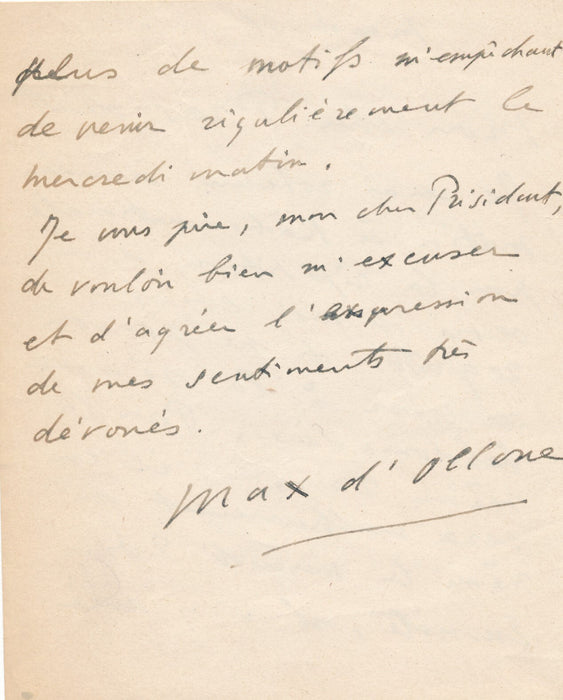 plus de motifs m'empêchant
de venir régulièrement le
mercredi matin.
Je vous prie, mon cher Président,
de vouloir bien m'excuser
et d'agréer l'expression
de mes sentiments très
dévoués.
Max d'Ollone